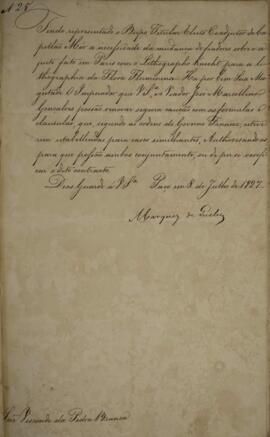 Nº 28
Tendo representado o Bispo Titular Eleito Coadjutor do Ca-
pellão Mor a necessidade da mudança de fiadores sobre o a-
juste feito em Paris com o Lithographo Knecht para a li-
thographia da Flora Fluminense: Ha por bem Sua Ma-
gestade O Imperador que V. Sª. e Pedro José Marcellino
Gonsalves possão renovar segura caução com as formulas e
clausulas, que, segundo as ordens do Governo Francez, estive-
rem estabellecidas para casos similhantes, Authorisando-os
para que possão ambos conjuntamente, ou de per si verifi-
car o dito contracto.
Deos Guarde a V. Sª. Paço em 8 de Julho de 1827.
Marquez de Queluz
Snr. Visconde da Pedra Branca